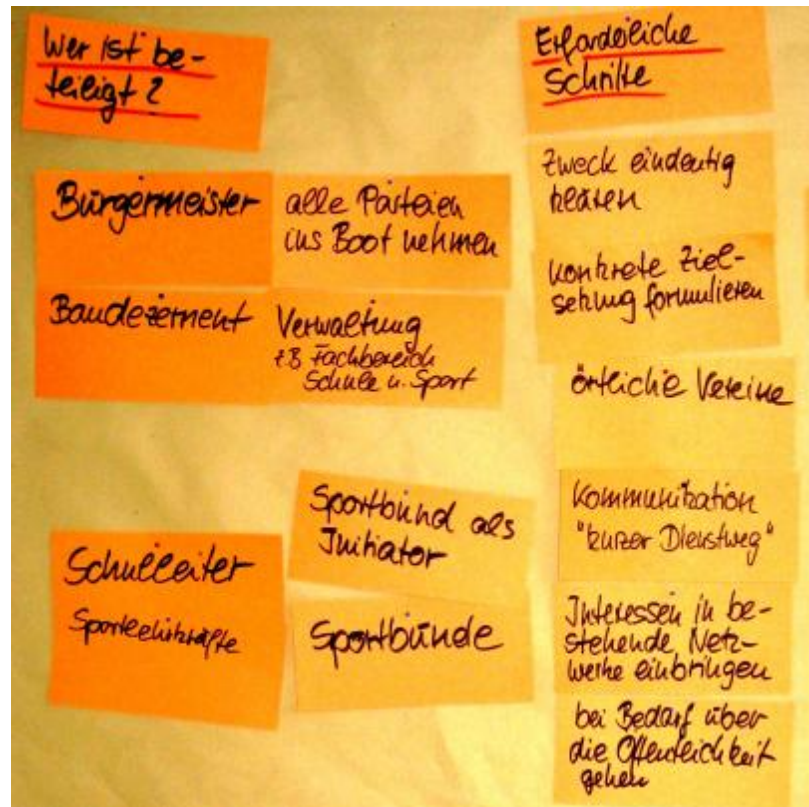 Wer ist be-
teiligt?
Bürgermeister
alle Parteien
ins Boot nehmen
Baudezernent
Verwaltung
z.B Fachbereich
Schule u. Sport
Schulleiter
Sportlehrkräfte
Sportbund als
Initiator
Sportbünde
Erforderliche
Schritte
Zweck eindeutig
klären
konkrete Ziel-
setzung formulieren
örtliche Vereine
Kommunikation
"kurzer Dienstweg"
Interessen in be-
stehende Netz-
werke einbringen
bei Bedarf über
die Öffentlichkeit
gehen